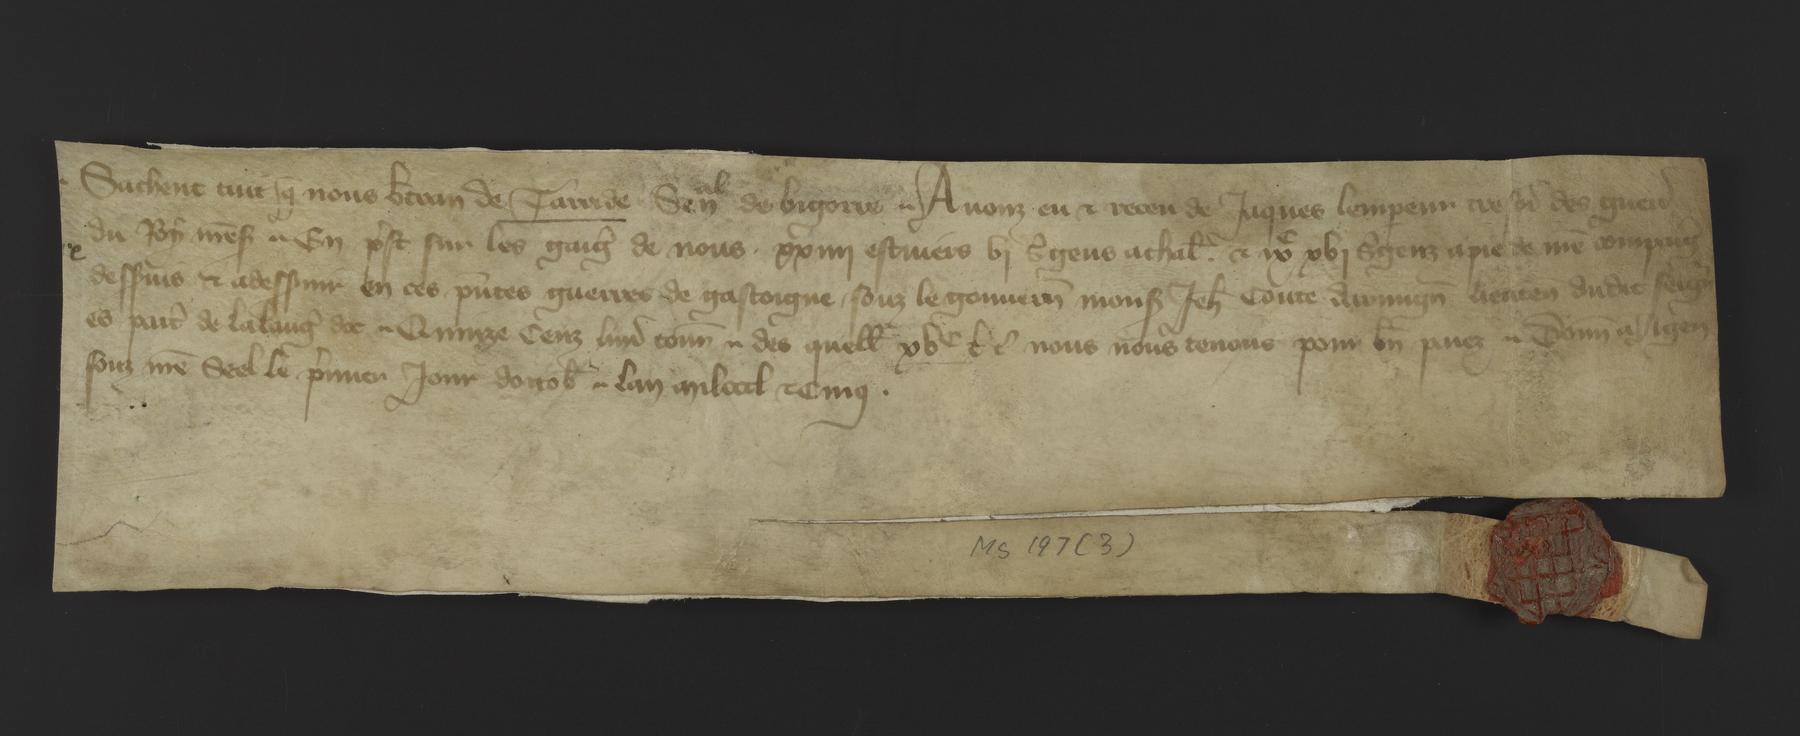 Sachent tuit q̄ nous b̄tran de Tarride Sen̄al de bigorre Auonz eu ⁊ receu de Jaques lempereur tresor̄ des guerr̄
du Roy nr̄e s̄ En p̄st sur les gaig̃ de nous xxiiij escuiers vj s̄gens acheual ⁊ ix xvj s̄genz apie de nr̄e compaig̃
desseruis ⁊ adesseruir en ces p̄ntes guerres de gascoigne souz le gouuern̄ mons̄ Jeh̄ Conte darmign̄ lieuten̄ dudit seign̄
es part̄ de la laug̃ doc Quinze Cenz liur̄ tourn̄ des quell̄ xvᶜ ł t̄ nous nous tenons pour bn̄ paiez Donn̄ a Agen
souz nr̄e Seel le p̄mier Jour doctob̄ lan mil cccl ⁊ Cinq .
Ms 197 (3)